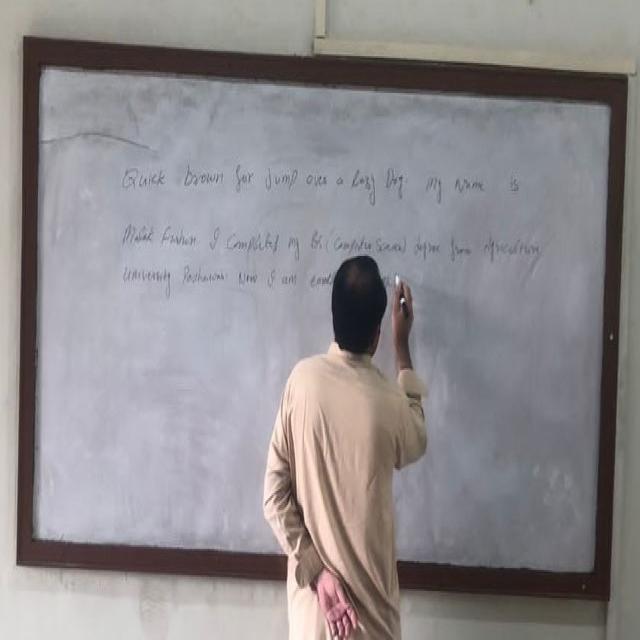 Quick brown for jump over a lazy Dog. My Name is
Malak I completed my BS (Computer Science) degree from Agriculture
University Peshawar Now I am